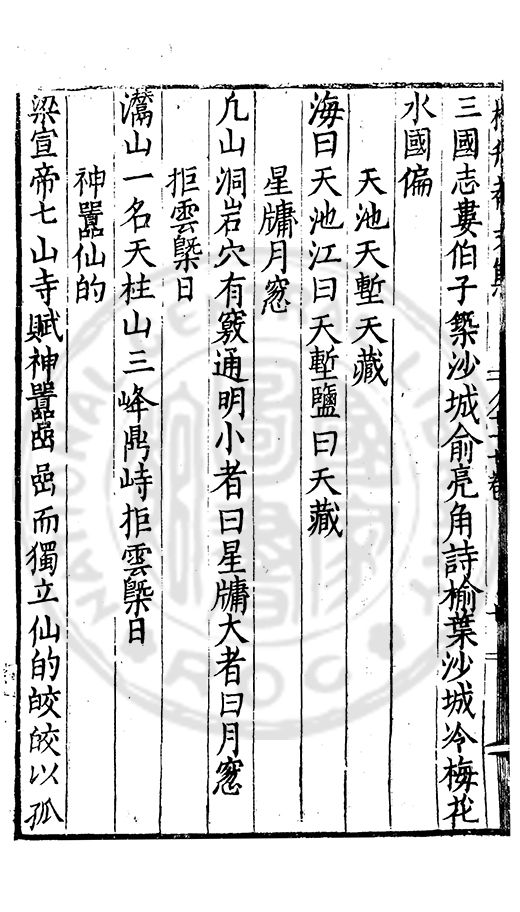 三國志婁伯子築沙城俞亮角詩榆葉沙城冷梅花
水國偏
天池天塹天藏
海曰天池江曰天塹鹽曰天藏
星牗月窓
凢山洞岩穴有竅通明小者曰星牗大者曰月窓
拒雲槩日
灊山一名天柱山三峰鼎峙拒雲槩日
神嚚仙的
梁宣帝七山寺賦神嚚嵒嵒而獨立仙的皎皎以孤